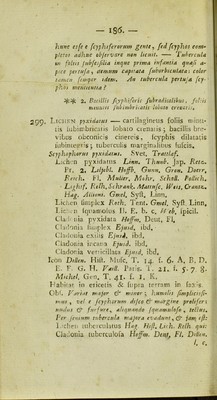 — 186. —
hunc esse e scyphiferorum gente, sed scyphos com-
pletos adhuc observare non licuit. — Tubercula
in foliis subsessilia inque prima infantia quasi a-
pice pertusa, demum capitata suborbiculata: color
tamen semper idem. An tubercula pertusa scy-
phos mentientia?
** 2. Bacillis scyphiferis subradiculibus, foliis
minutis subimbricatis lobato crenatis.
299. LICHEN pyxidatus — cartilagineus foliis minu-
tis subimbricatis lobato crenatis; bacillis bre-
vibus obconicis cinereis, scyphis dilatatis
subintegris; tuberculis marginalibus fuscis.
Scyphophorus pyxidatus. Svet. Trattlaf.
Lichen pyxidatus Linn. Thunb. jap. Retz.
Pr. 2. Leijsht. Hoffm. Gunn. Gron. Dorrr.
Forch. Fl. Muller, Mohr, Scholl. Pollich,
Lightf. Relh. Schrank, Mattuse, Weis, Crantz.
Hag. Allioni. Gmel, Syst. Linn.
Lichen simplex Roth. Tent. Gmel, Syst. Linn.
Lichen squamolus B. E. b. c, Web. spicil.
Cladonia pyxidata Hoffm. Deut, Fl.
Cladonia simplex Ejusd, ibd.
Cladonia exilis Ejusd, ibd.
Cladonia incana Ejusd, ibd.
Cladonia verticillata Ejusd, ibd.
Icon Dillen. Hist. Musc, T. 14. f. 6. A, B, D.
E. F. G. H. Vaill. Paris. T. 21. f. 5. 7. 8.
Michel. Gen, T, 41. f. 1, K,
Habitat in ericetis & supra terram in saxis.
Obs. Variat major & minor; humilis simplicissi-
mus, vel e scyphorum disco & margine prolifer;
nudus & furfure, aliquando squamulose, tectus.
Per senium tubercula majora evadunt, & sunt est:
Lichen tuberculatus Hag. Hist. Lich. Relh. quic
Cladonia tuberculosa Hoffm. Deut, Fl. Dillen.
l. c.